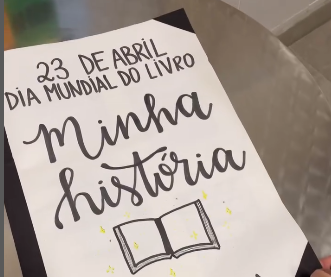 23 DE ABRIL
DIA MUNDIAL DO LIVRO
Minha
história